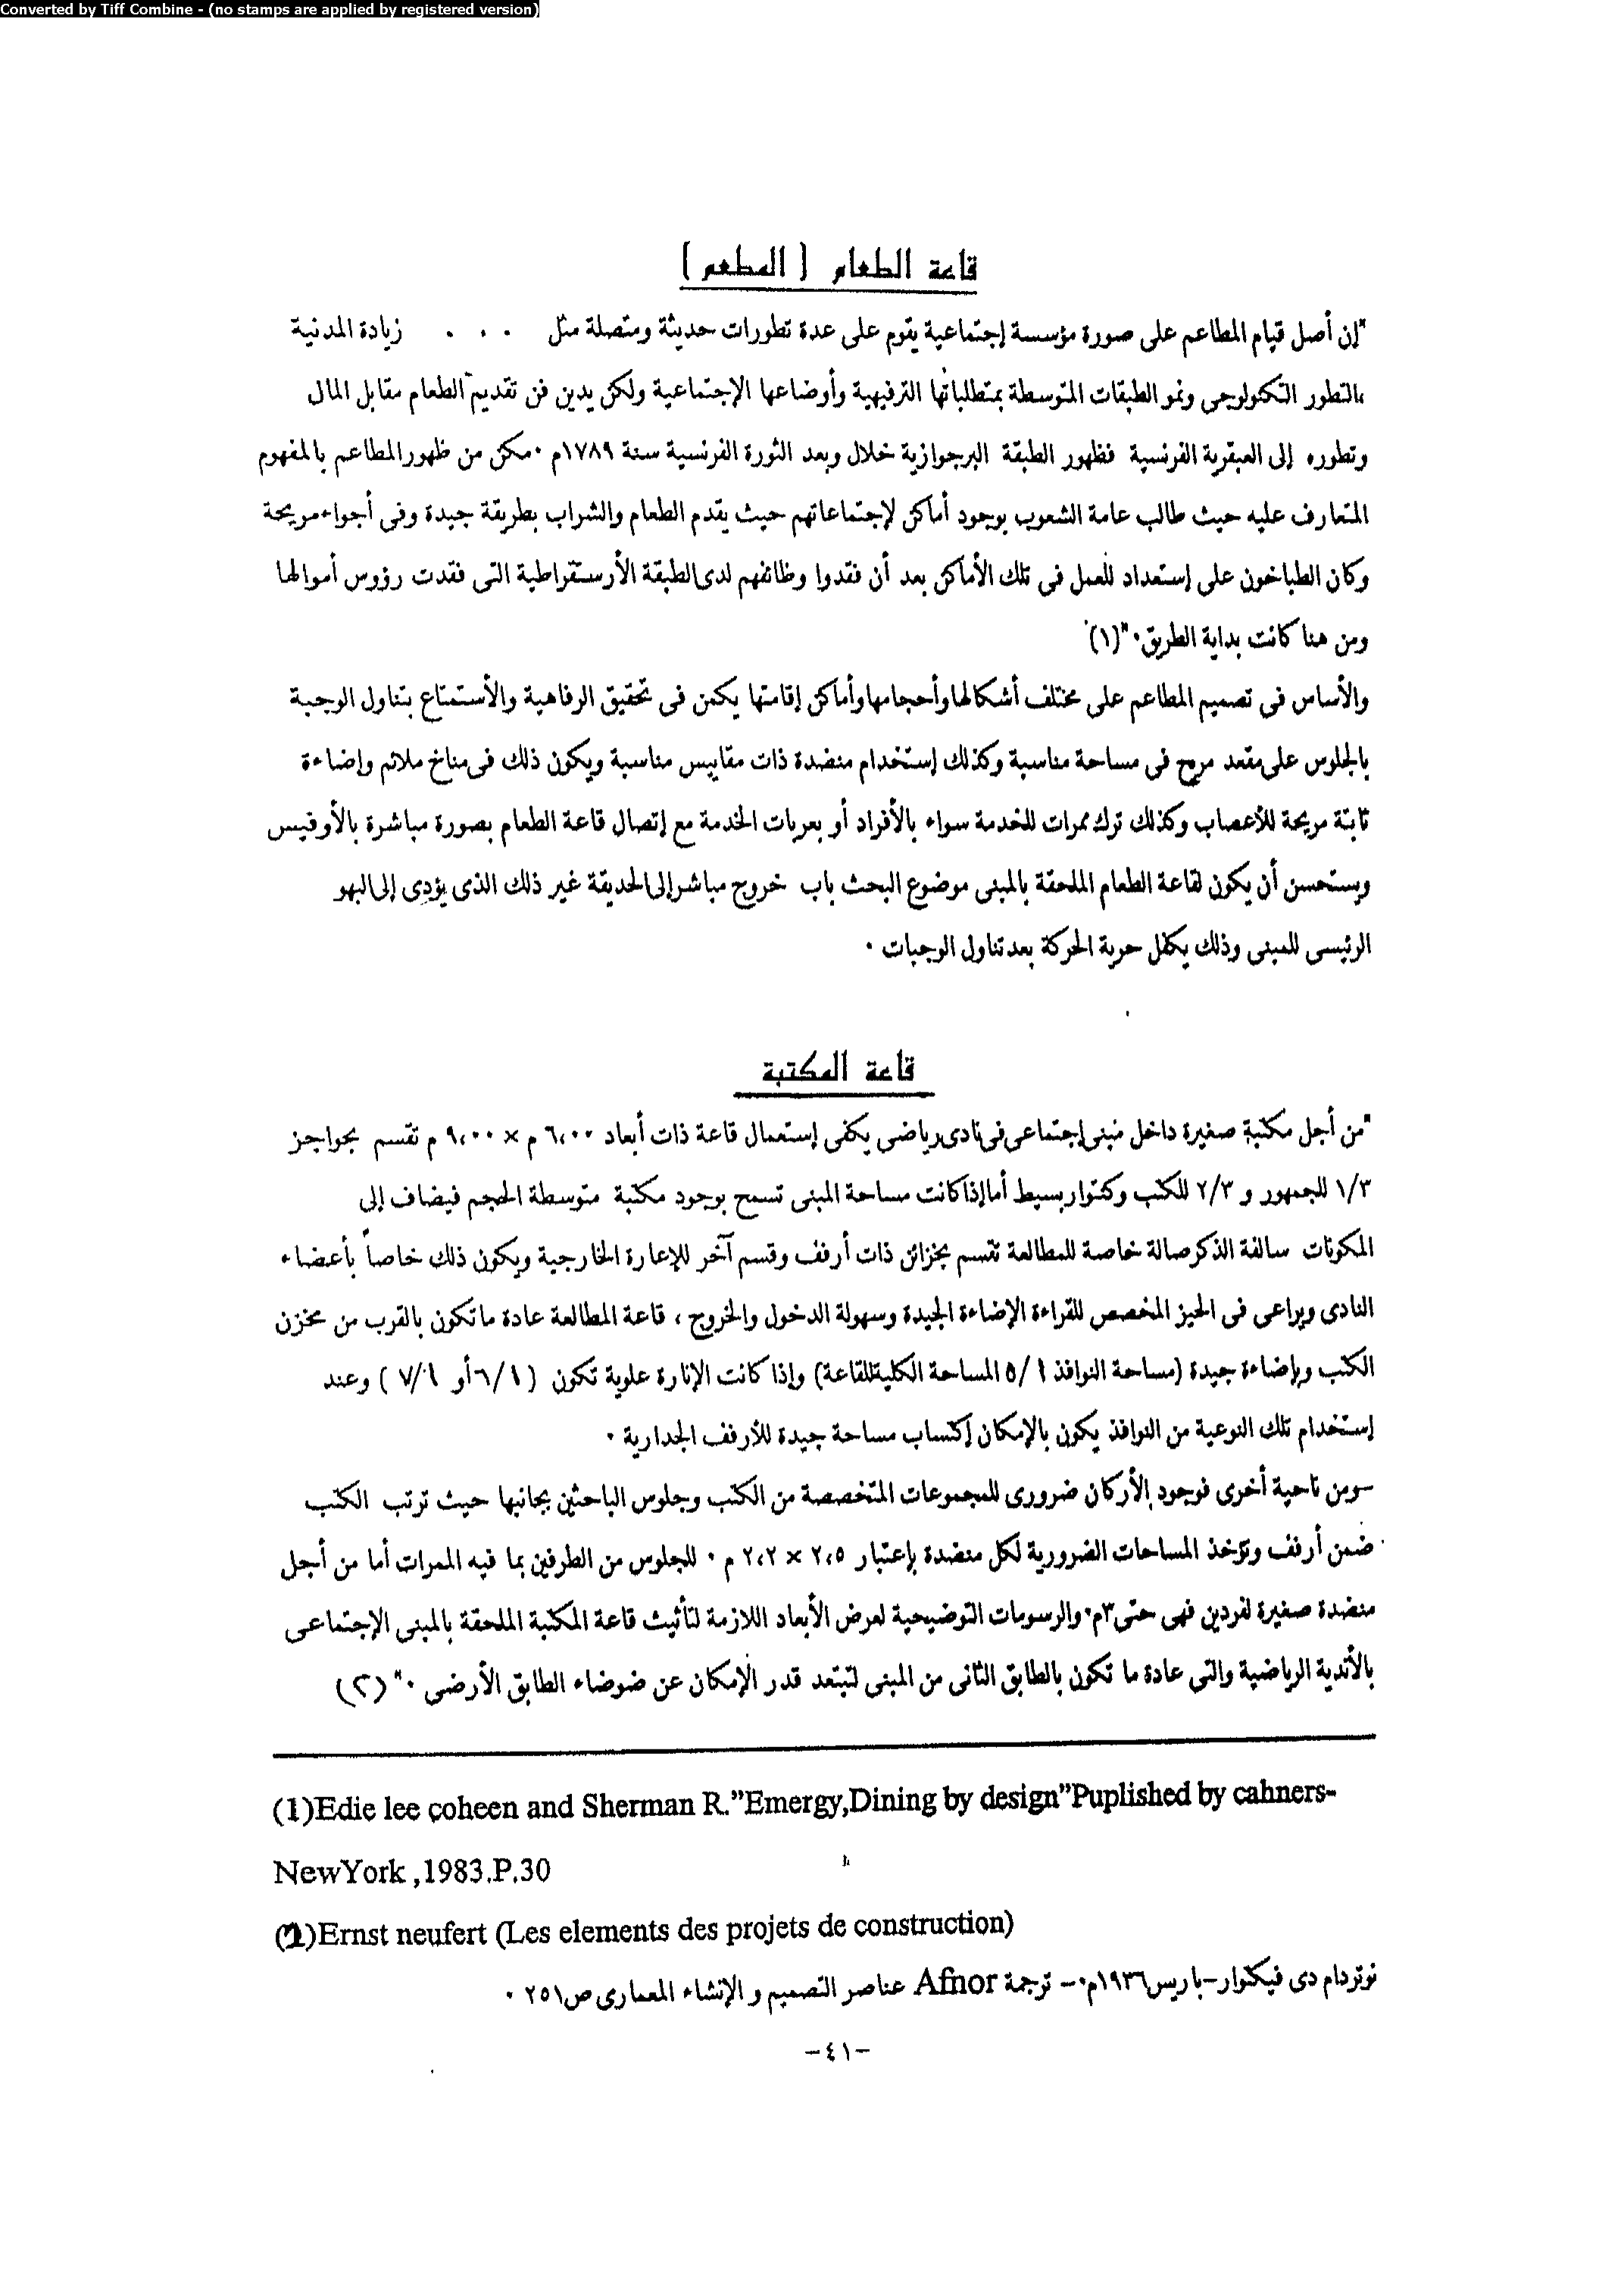 Converted by Tiff Combine - (no stamps are applied by registered version)
قاعة الطعام ( المطعم )
"إن أصل قيام المطاعم على صورة مؤسسة إجتماعية يقوم على عدة تطورات حديثة ومتصلة مثل . . . زيادة المدنية
،التطور التكنولوجى ونمو الطبقات المتوسطة بمتطلباتها الترفيهية وأوضاعها الإجتماعية ولكن يدين فن تقديم الطعام مقابل المال
وتطوره إلى العبقرية الفرنسية فظهور الطبقة البرجوازية خلال وبعد الثورة الفرنسية سنة ١٧٨٩م ٠مكن من ظهور المطاعم بالمفهوم
المتعارف عليه حيث طالب عامة الشعوب بوجود أماكن لإجتماعاتهم حيث يقدم الطعام والشراب بطريقة جيدة وفى أجواء مريحة
وكان الطباخون على إستعداد للعمل فى تلك الأماكن بعد أن فقدوا وظائفهم لدى الطبقة الأرستقراطية التى فقدت رؤوس أموالها
ومن هنا كانت بداية الطريق٠"(١)
والأساس فى تصميم المطاعم على مختلف أشكالها وأحجامها وأماكن إقامتها يكمن فى تحقيق الرفاهية والأستمتاع بتناول الوجبة
بالجلوس على مقعد مريح فى مساحة مناسبة وكذلك إستخدام منضدة ذات مقاييس مناسبة ويكون ذلك فى مناخ ملائم وإضاءة
ثابتة مريحة للأعصاب وكذلك ترك ممرات للخدمة سواء بالأفراد أو بعربات الخدمة مع إتصال قاعة الطعام بصورة مباشرة بالأوفيس
ويستحسن أن يكون لقاعة الطعام الملحقة بالمبنى موضوع البحث باب خروج مباشر إلى الحديقة غير ذلك الذى يؤدى إلى البهو
الرئيسى للمبنى وذلك يكفل حرية الحركة بعد تناول الوجبات ٠
قاعة المكتبة
"من أجل مكتبة صغيرة داخل مبنى إجتماعى فى نادى رياضى يكفى إستعمال قاعة ذات أبعاد ٦،٠٠ م × ٩،٠٠ م تقسم بحواجز
١/٣ للجمهور و ٢/٣ للكتب وكنتوار بسيط أما إذا كانت مساحة المبنى تسمح بوجود مكتبة متوسطة الحجم فيضاف إلى
المكونات سالفة الذكر صالة خاصة للمطالعة تقسم بخزائن ذات أرفف وقسم آخر للإعارة الخارجية ويكون ذلك خاصاً بأعضاء
النادى ويراعى فى الحيز المخصص للقراءة الإضاءة الجيدة وسهولة الدخول والخروج ، قاعة المطالعة عادة ما تكون بالقرب من مخزن
الكتب وبإضاءة جيدة (مساحة النوافذ ١/٥ المساحة الكلية للقاعة) وإذا كانت الإنارة علوية تكون (١/٦ أو ١/٧ ) وعند
إستخدام تلك النوعية من النوافذ يكون بالإمكان إكتساب مساحة جيدة للأرفف الجدارية ٠
-ومن ناحية أخرى فوجود الأركان ضرورى للمجموعات المتخصصة من الكتب وجلوس الباحثين بجانبها حيث ترتب الكتب
ضمن أرفف وتؤخذ المساحات الضرورية لكل منضدة بإعتبار ٢،٥ × ٢،٢ م ٠ للجلوس من الطرفين بما فيه الممرات أما من أجل
منضدة صغيرة لفردين فهى حتى ٣م٠ والرسومات التوضيحية لعرض الأبعاد اللازمة لتأثيث قاعة المكتبة الملحقة بالمبنى الإجتماعى
بالأندية الرياضية والتى عادة ما تكون بالطابق الثانى من المبنى لتبتعد قدر الإمكان عن ضوضاء الطابق الأرضى ٠" (٢)
(1)Edie lee coheen and Sherman R."Emergy,Dining by design"Puplished by cahners-
NewYork ,1983.P.30
(2)Ernst neufert (Les elements des projets de construction)
نوتردام دى فيكتوار-باريس١٩٣٦م٠- ترجمة Afnor عناصر التصميم و الإنشاء المعمارى ص٢٥١ ٠
-٤١-